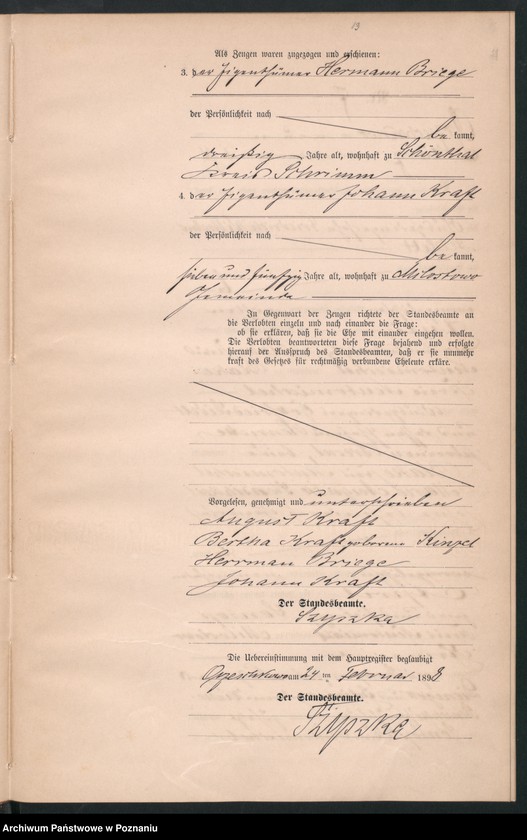 13
Als Zeugen waren zugezogen und erschienen:
3. der Eigenthümer Hermann Briege
der Persönlichkeit nach
be kannt,
dreißig Jahre alt, wohnhaft zu Schönthal
Kreis Schrimm
4. der Eigenthümer Johann Kraft
der Persönlichkeit nach
be kannt,
sieben und fünfzig Jahre alt, wohnhaft zu Milostowo
Gemeinde
In Gegenwart der Zeugen richtete der Standesbeamte an
die Verlobten einzeln und nach einander die Frage:
ob sie erklären, daß sie die Ehe mit einander eingehen wollen.
Die Verlobten beantworteten diese Frage bejahend und erfolgte
hierauf der Ausspruch des Standesbeamten, daß er sie nunmehr
kraft des Gesetzes für rechtmäßig verbundene Eheleute erkläre.
Vorgelesen, genehmigt und unterschrieben
August Kraft
Bertha Kraft geborene Kinzel
Herrman Briege
Johann Kraft
Der Standesbeamte.
Szyszka
Die Uebereinstimmung mit dem Hauptregister beglaubigt
am 24 ten Februar 1898
Der Standesbeamte.
Szyszka
Archiwum Państwowe w Poznaniu